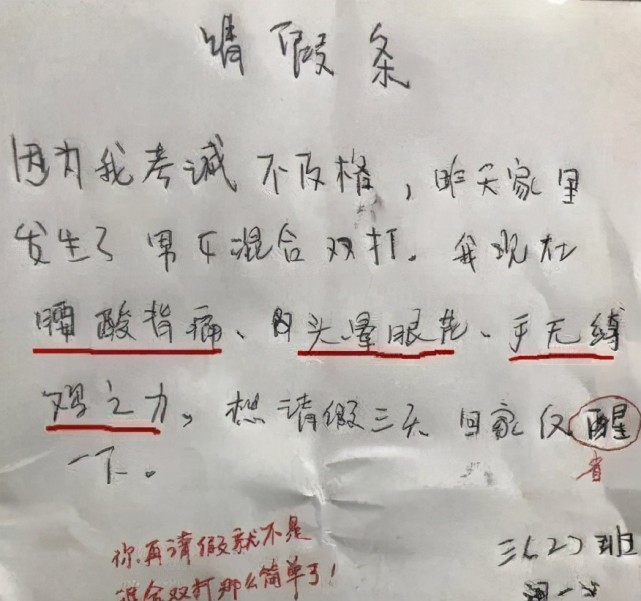 请假条
因为我考诚不及格，昨天家里
发生了男女混合双打。我现在
腰酸背痛、头晕眼花、手无缚
鸡之力，想请假三天回家反醒
一下。
省
三(2)班
你再请假就不是
混合双打那么简单了！